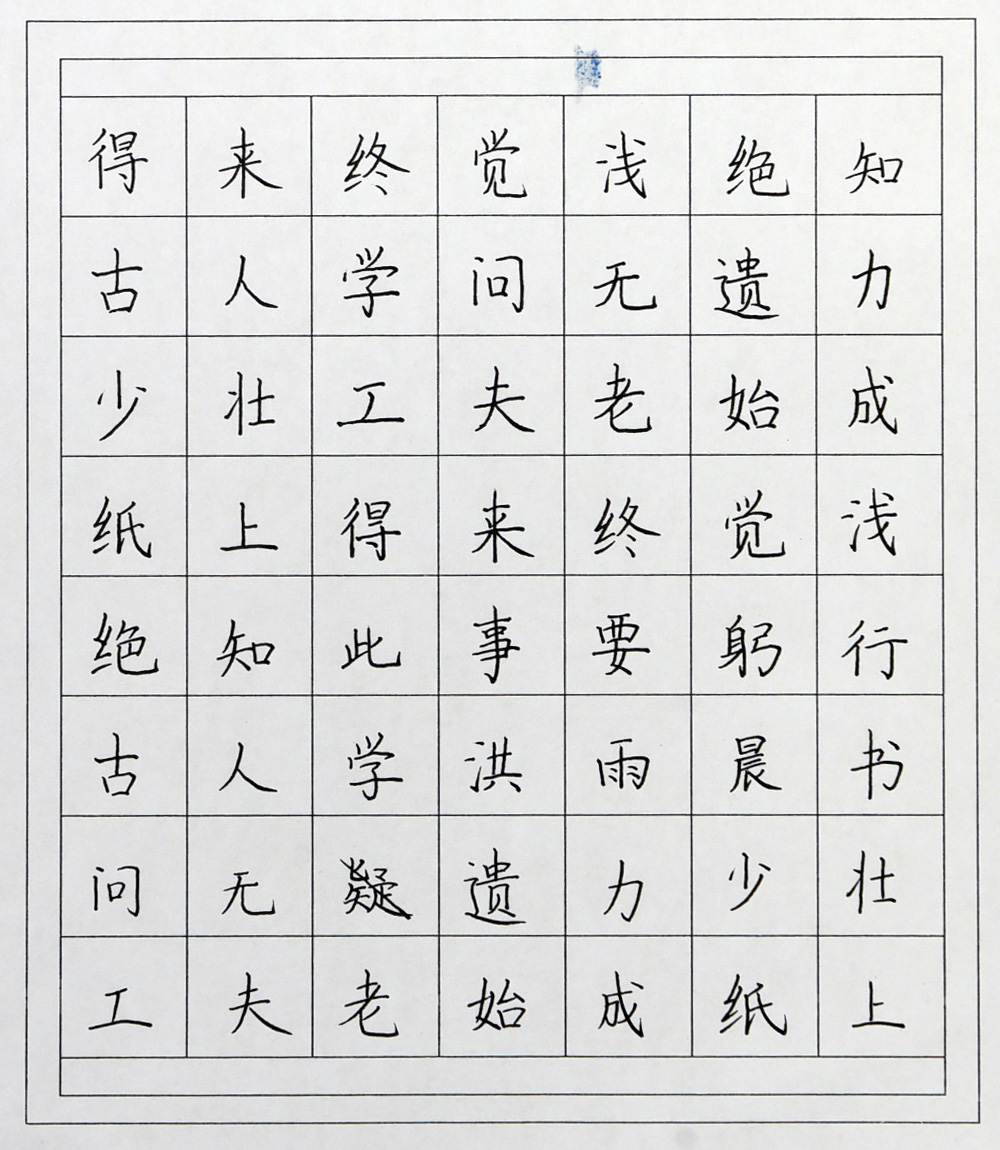 得来终觉浅绝知
古人学问无遗力
少壮工夫老始成
纸上得来终觉浅
绝知此事要躬行
古人学洪雨晨书
问无疑遗力少壮
工夫老始成纸上